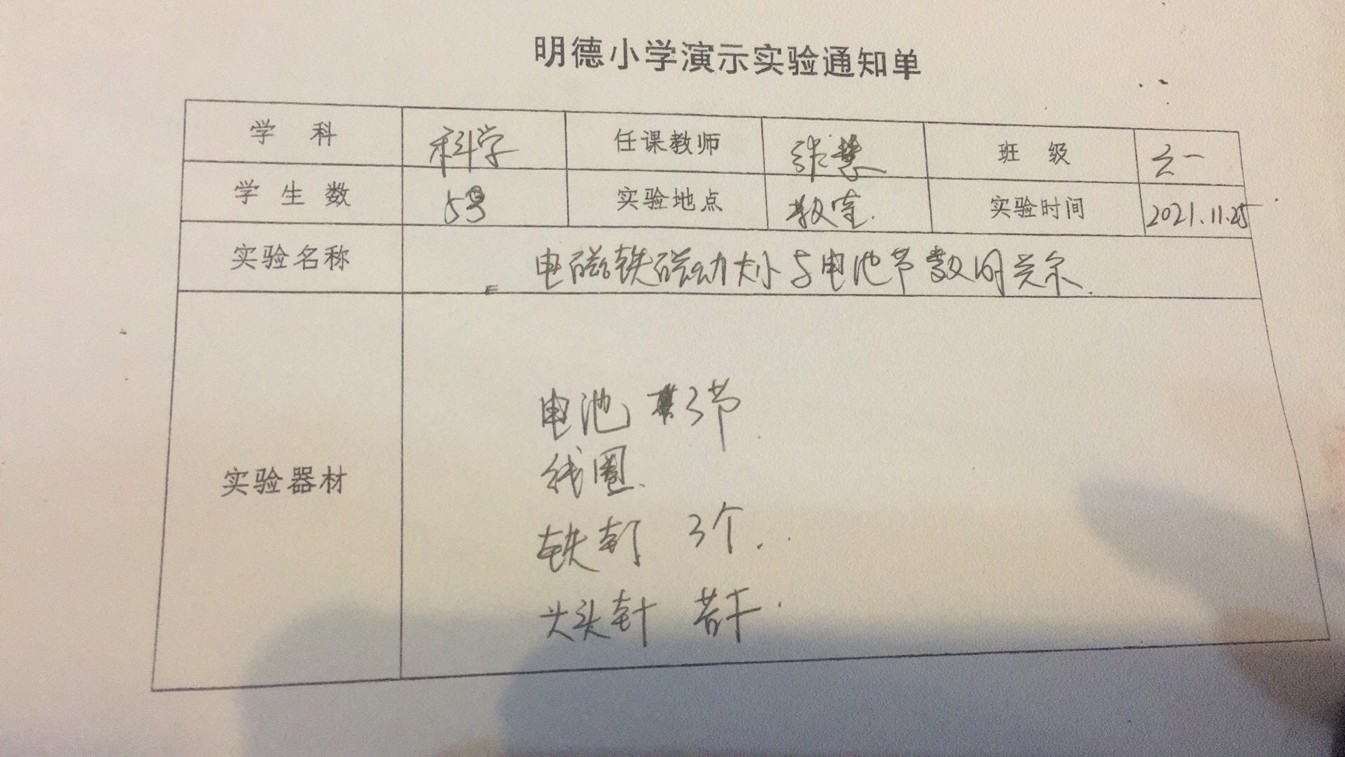 明德小学演示实验通知单
学 科 科学 任课教师 张慧 班 级 六一
学 生 数 53 实验地点 教室. 实验时间 2021.11.25
实验名称 电磁铁磁力大小与电池节数的关系.
电池 3节
线圈.
实验器材
铁钉 3个.
大头针 若干.